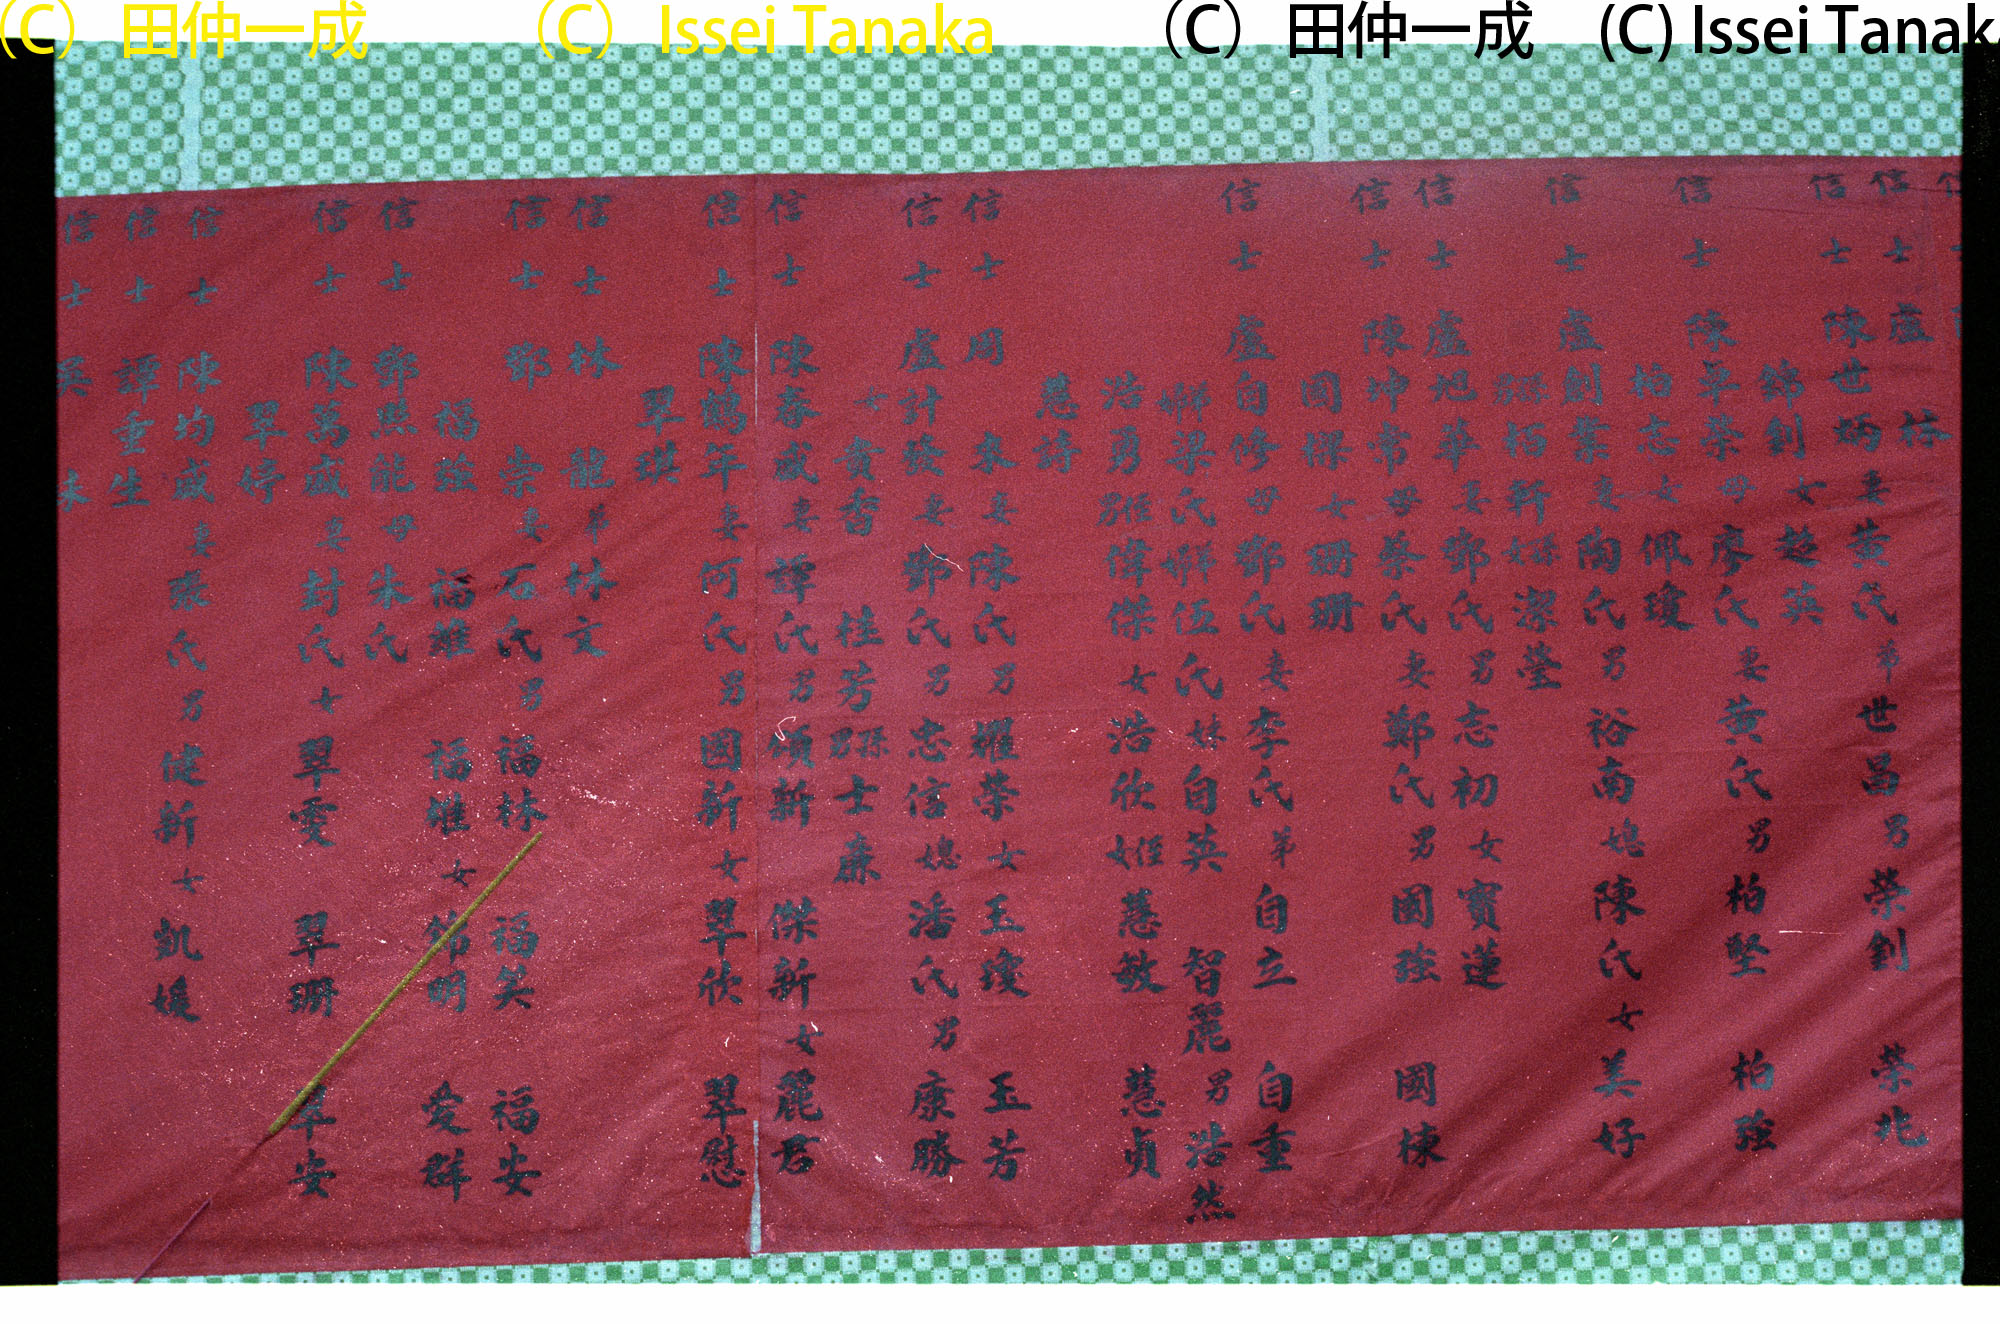 (C) 田仲一成 (C) Issei Tanaka (C) 田仲一成 (C) Issei Tanaka
信士 盧 林
信士 陳世炳 妻 黃氏 弟 世昌 男 榮釗 榮北
錦釗 女 趙英
信士 陳卓榮 母 廖氏 妻 黃氏 男 柏堅 柏強
柏志 女 佩瓊
信士 盧創業 妻 陶氏 男 裕南 媳 陳氏 女 美好
男孫 栢軒 女孫 潔瑩
信士 盧旭華 妻 鄧氏 男 志初 女 寶蓮
信士 陳坤常 母 蔡氏 妻 鄭氏 男 國強 國棟
國樑 女 珊珊
信士 盧自修 母 鄧氏 妻 李氏 弟 自立 自重
弟婦 梁氏 弟婦 伍氏 妹 自英 智麗 男 浩然
浩勇 男姪 偉傑 女 浩欣 女姪 慧敏 慧貞
慧詩
信士 周 東 妻 陳氏 男 耀榮 女 玉瓊 玉芳
信士 盧計發 妻 鄧氏 男 忠信 媳 潘氏 男 康勝
女 貴香 桂芳 男孫 士廉
信士 陳春盛 妻 譚氏 男 頌新 傑新 女 麗君
信士 陳鶴年 妻 何氏 男 國新 女 翠欣 翠慰
翠琪
信士 林 龍 弟 林文
信士 鄧 崇 妻 石氏 男 福林 福笑 福安
福強 福雄 福維 女 錦明 愛群
信士 鄧照能 母 朱氏
信士 陳萬盛 妻 封氏 女 翠雯 翠珊 翠安
翠婷
信士 陳均盛 妻 張氏 男 健新 女 凱媛
信士 譚重生
信士